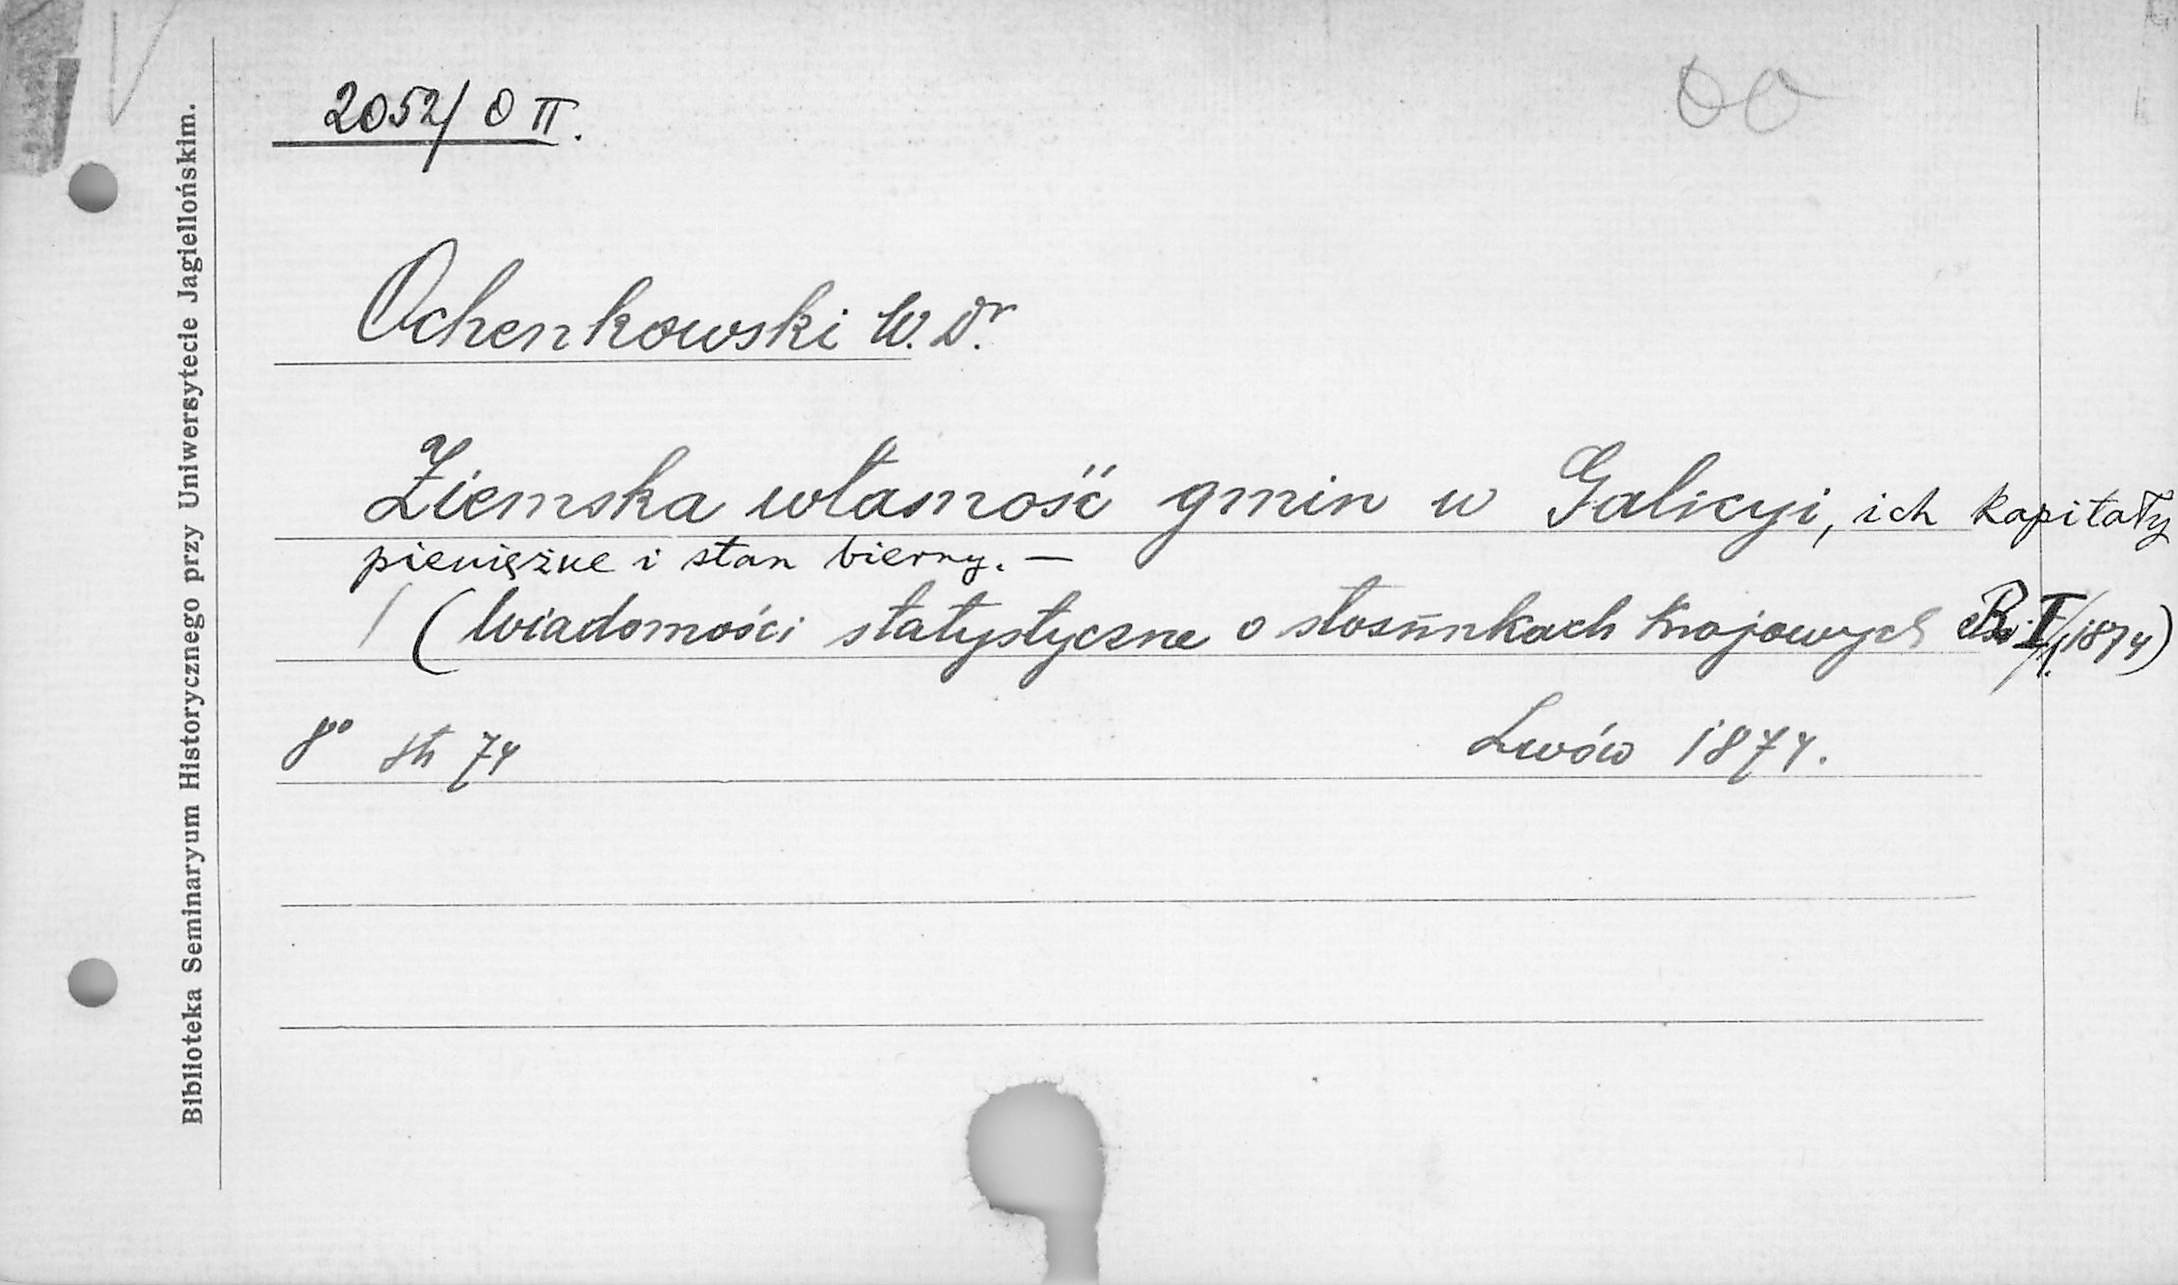 2052/ O II.
Ochenkowski W. Dr.
Ziemska własność gmin w Galicyi, ich kapitały
pieniężne i stan bierny. —
(Wiadomości statystyczne o stosunkach krajowych R. I/1. 1874)
8° str 74
Lwów 1874.
Biblioteka Seminaryum Historycznego przy Uniwersytecie Jagiellońskim.